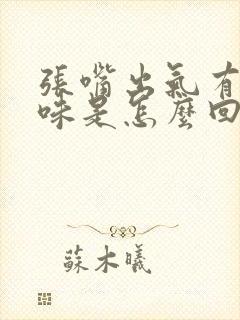 張嘴出氣有
味是怎麼回
蘇木曦